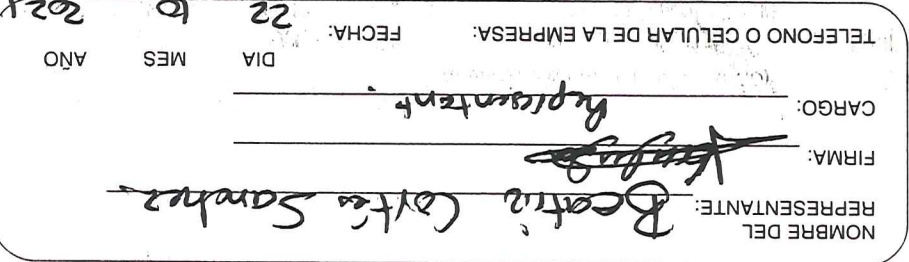 NOMBRE DEL
REPRESENTANTE: Beatriz Cortés Sanchez
FIRMA:
CARGO: Representant
DIA MES AÑO
TELEFONO O CELULAR DE LA EMPRESA: FECHA: 22 10